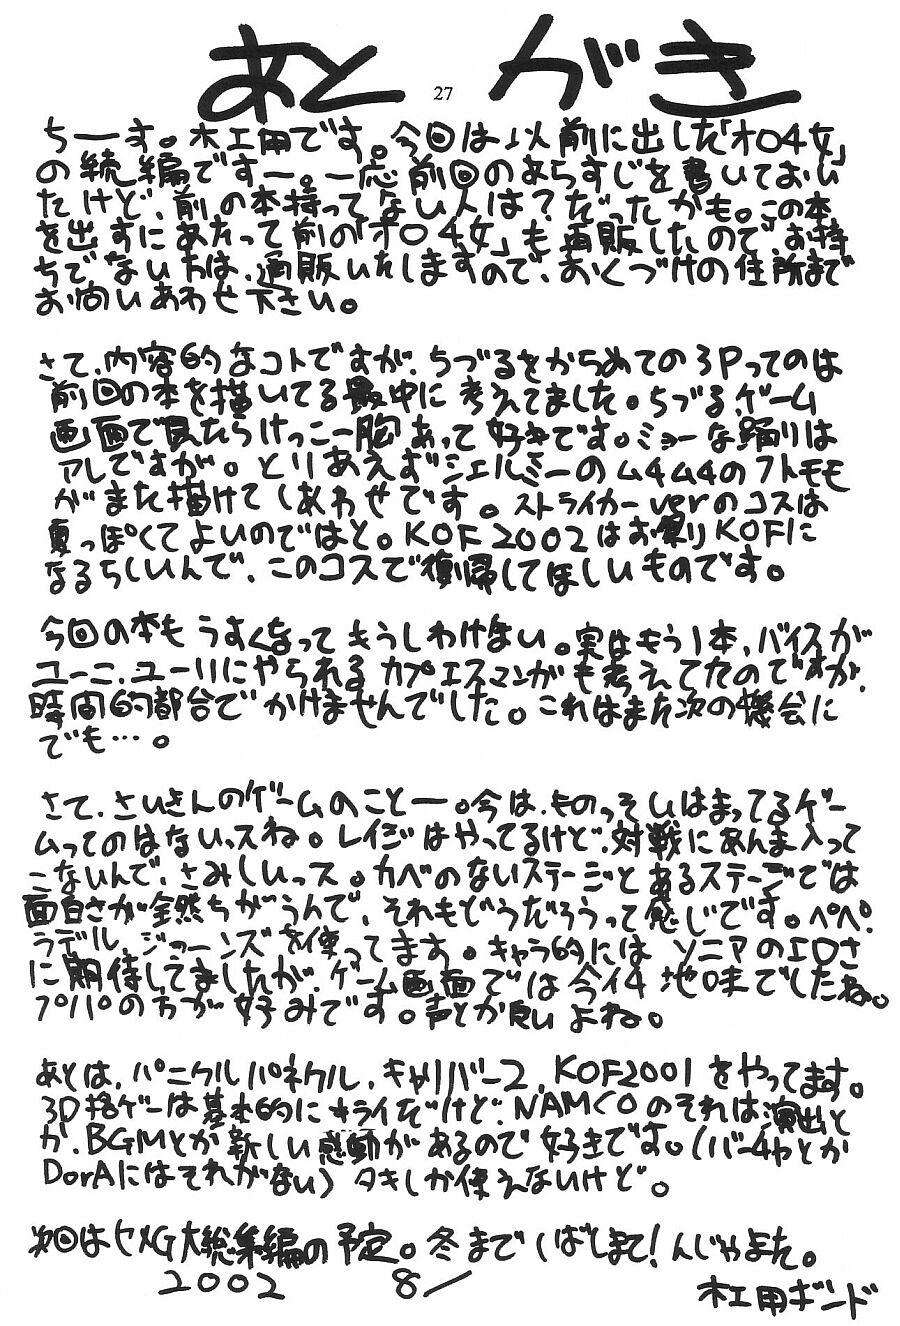 あとがき
27
ちーす。木工用です。今回は以前に出した「オロ4女」
の続編ですー。一応前回のあらすじを書いておい
たけど、前の本持ってない人は？だったかも。この本
を出すにあたって前の「オロ4女」も再販したので、お持
ちでない方は、通販いたしますので、おくづけの住所まで
お問いあわせ下さい。
さて、内容的なコトですが、ちづるをからめての3Pってのは
前回の本を描いてる最中に考えてました。ちづる、ゲーム
画面で見たらけっこー胸あって好きです。ミョーな踊りは
アレですが。とりあえずシェルミーのム4ム4のフトモモ
がまた描けてしあわせです。ストライカーverのコスは
夏っぽくてよいのではと。KOF2002はお祭りKOFに
なるらしいんで、このコスで復帰してほしいものです。
今回の本もうすくなってもうしわけない。実はもう1本、バイスが
ユーニ、ユーリにやられるカプエスマンガも考えてたのですが、
時間的都合でかけませんでした。これはまた次の機会に
でも…。
さて、さいきんのゲームのことー。今は、ものっそいはまってるゲー
ムってのはないっスね。レイジはやってるけど、対戦にあんま入って
こないんで、さみしいっス。カベのないステージとあるステージでは
面白さが全然ちがうんで、それもどうだろうって感じです。ペペ、
ラデル、ジョーンズを使ってます。キャラ的にはソニアのエロさ
に期待してましたが、ゲーム画面では今イ4地味でしたね。
プルプルの方が好みです。声とか良いよね。
あとは、パニクルパネクル、キャリバー2、KOF2001をやってます。
3D格ゲーは基本的にキライだけど、NAMCOのそれは演出と
か、BGMとか新しい感動があるので好きです。（バー4ャとか
DorAにはそれがない）タキしか使えないけど。
次回はセメG大総集編の予定。冬までしばしまて！んじゃまた。
2002 8/
木工用ボンド